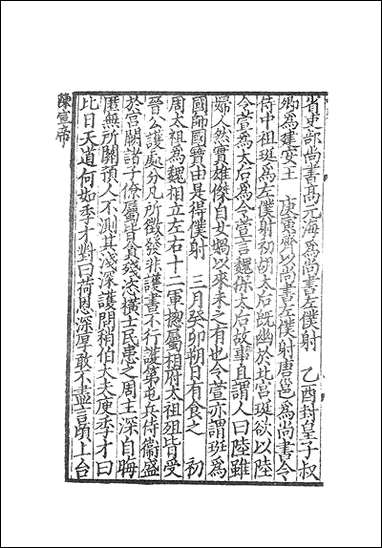 省吏部尚書高元海爲尚書左僕射　乙酉封皇子叔
卿爲建安王　庚寅齊以尚書左僕射唐邕爲尚書令
侍中祖珽爲左僕射初胡太后既幽於北宮珽欲以陸
令萱爲太后爲令萱言魏保太后故事且謂人曰陸雖
婦人然實雄傑自女媧以來未之有也令萱亦謂珽爲
國師國寶由是得僕射　三月癸卯朔日有食之　初
周太祖爲魏相立左右十二軍摠屬相府太祖殂皆受
晉公護處分凡所徵發非護書不行護第屯兵侍衞盛
於宮闕諸子僚屬皆貪殘恣橫士民患之周主深自晦
匿無所關預人不測其淺深護問稍伯大夫庾季才曰
比日天道何如季才對曰荷恩深厚敢不盡言頃上台
陳宣帝